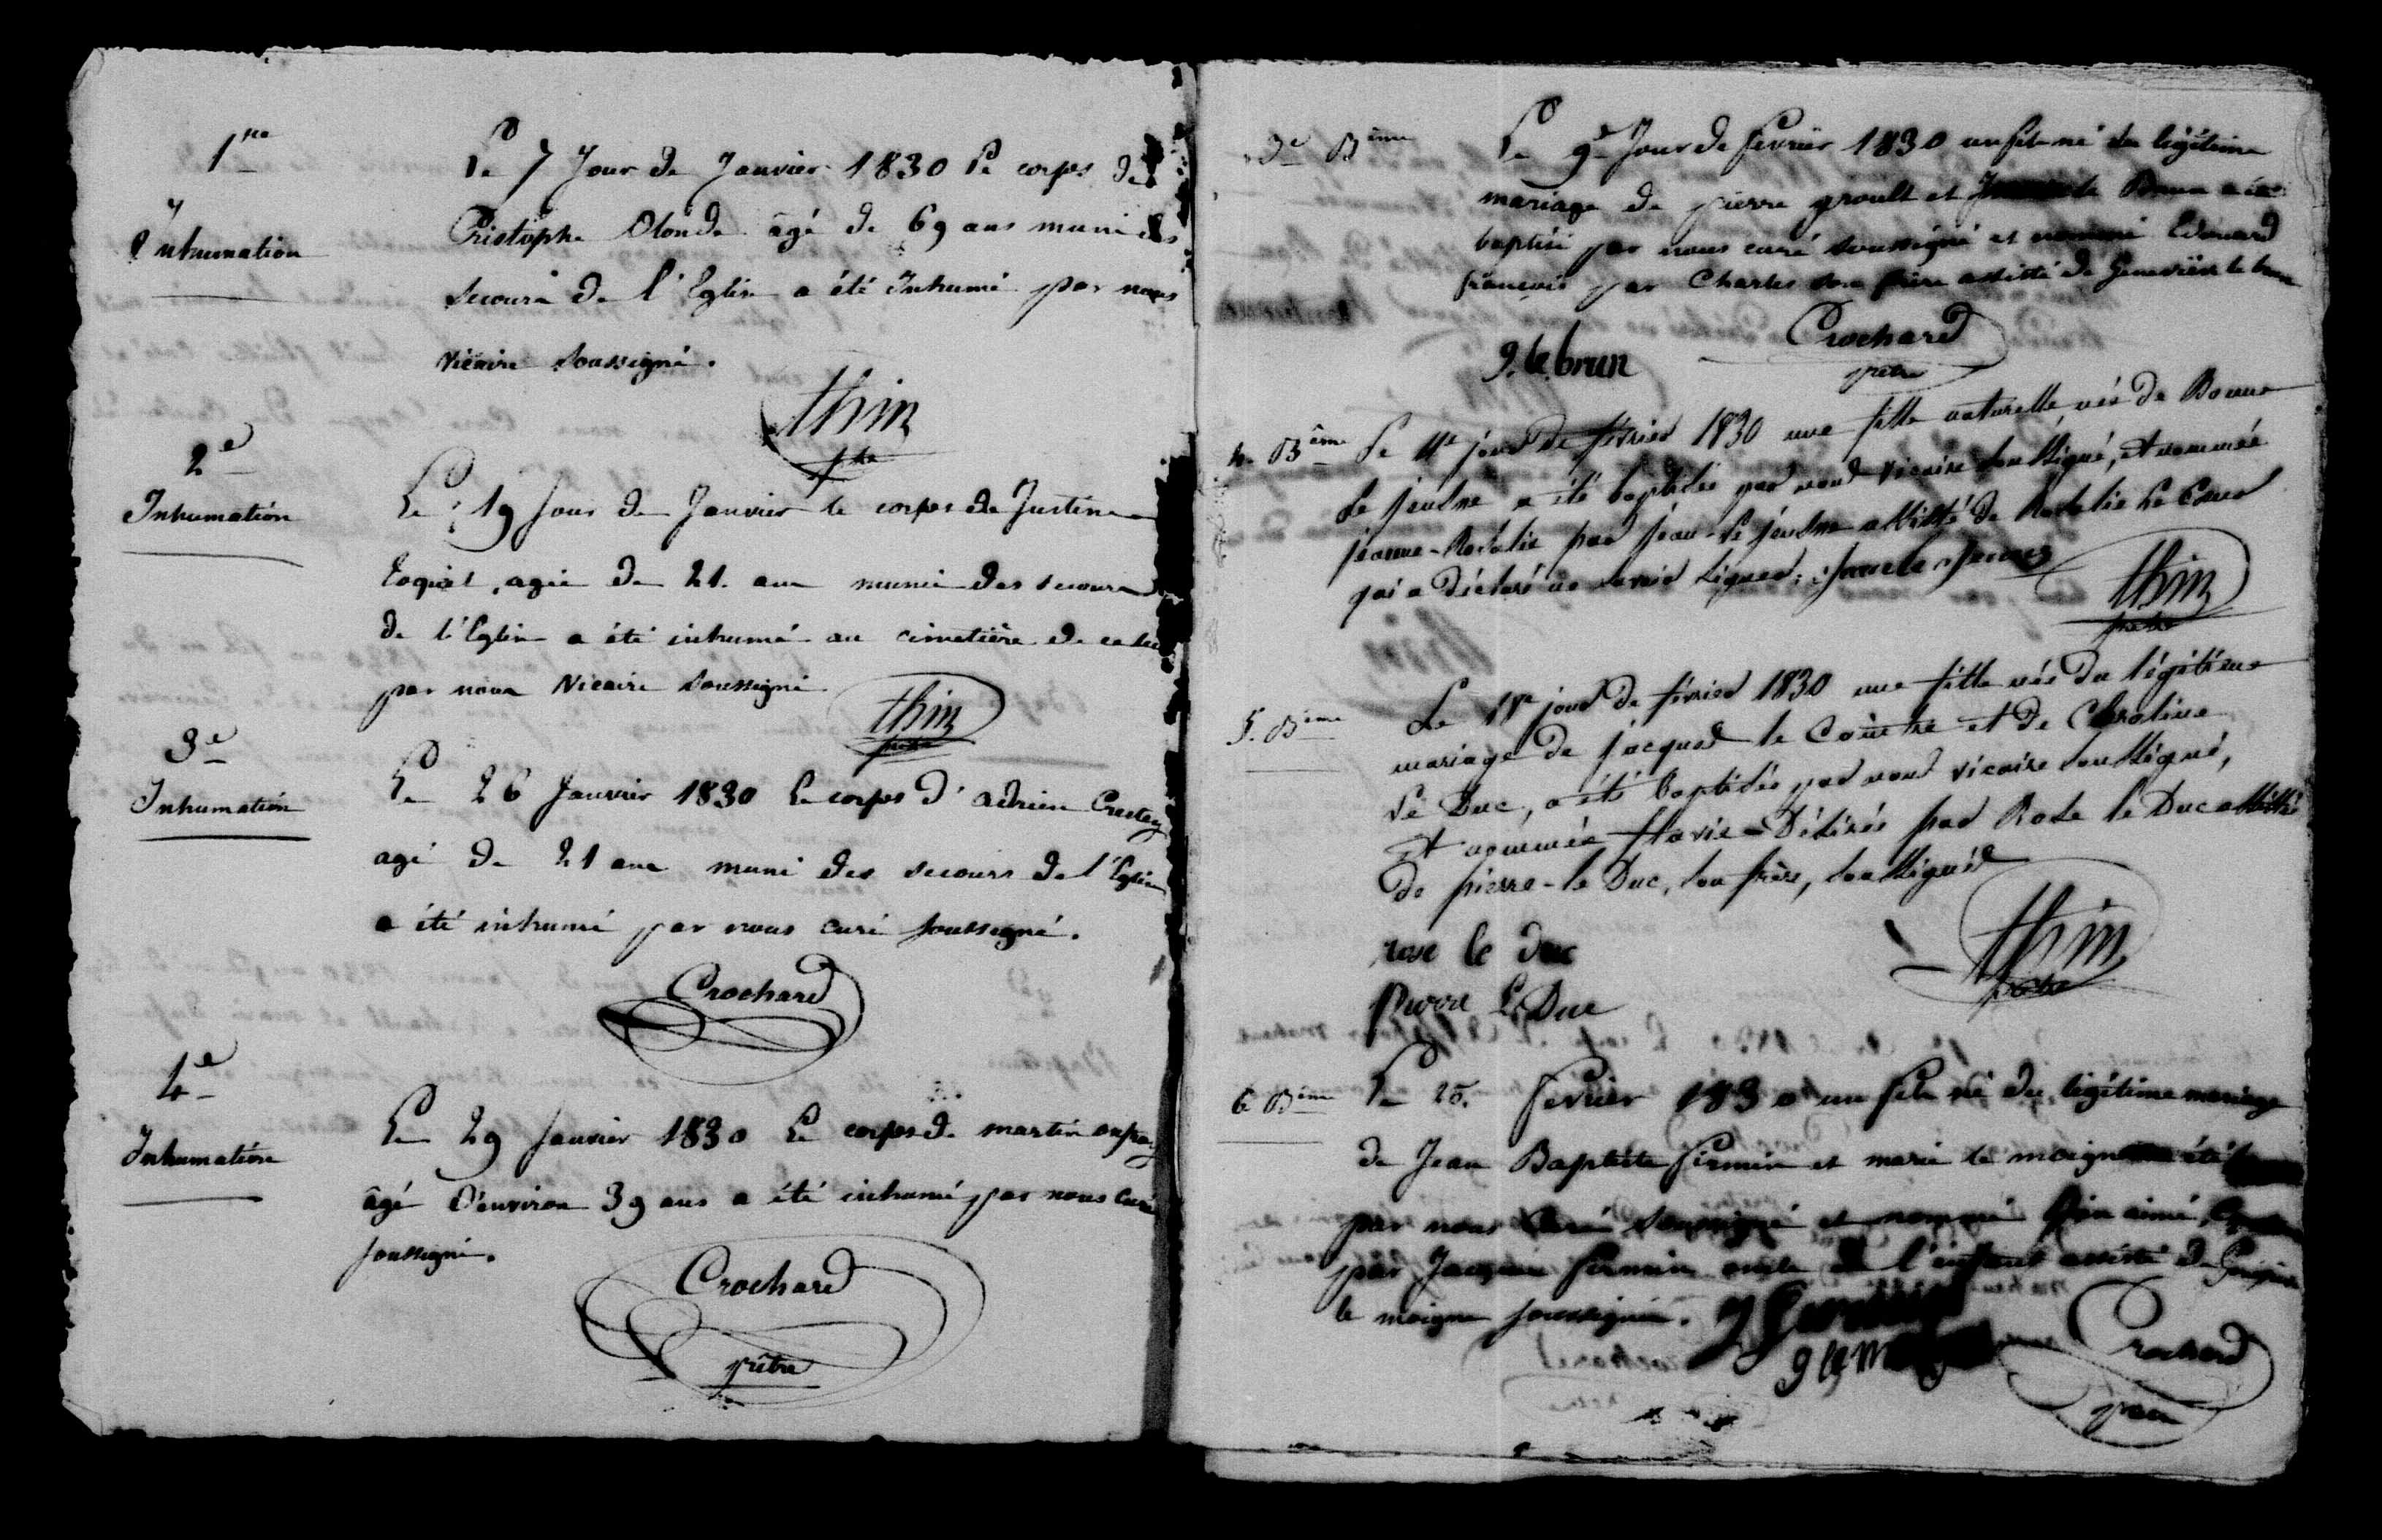 1re
Inhumation
Le 7 Jour de Janvier 1830 Le corps de
Cristophe Olonde âgé de 69 ans muni des
secours de l'Eglise a été Inhumé par nous
Vicaire soussigné.
thin
ptre
2e
Inhumation
Le 19 Jour de Janvier le corps de Justine
agée de 21 ans munie des secours
de l'Eglise a été inhumé au cimetière de ce lieu
par nous Vicaire soussigné
thin
prêtre
3e
Inhumation
Le 26 Janvier 1830 Le corps d'adrien Crestey
agé de 21 ans muni des secours de l'Eglise
a été inhumé par nous curé soussigné.
Crochard
4e
Inhumation
Le 29 Janvier 1830 Le corps de martin
âgé d'environ 39 ans a été inhumé par nous curé
soussigné.
Crochard
prêtre
3e Bème
Le 9e Jour de fevrier 1830 un fils né du légitime
mariage de pierre groult et le Brun a été
baptisé par nous curé soussigné et nommé Edouard
françois par Charles son frère assisté de Geneviève le brun
g. le brun
Crochard
prêtre
4. Bème
Le 11e jour de février 1830 une fille naturelle, née de Bonne
Le jeulne a été baptisée par nous vicaire soussigné, et nommée
jeanne-Rosalie par jean Le jeulne assisté de Rosalie Le Cour
qui a déclaré ne savoir signer.
thin
prêtre
5. Bème
Le jour de février 1830 une fille née du légitime
mariage de jacques le Cointre et de Caroline
Le Duc, a été baptisée par nous vicaire soussigné,
et nommée flavie-Désirée par Rose le Duc assistée
de pierre-le Duc, son frère, soussignés
rose le duc
pierre Le Duc
thin
prêtre
6 Bème
Le 25. fevrier 1830 un fils né du légitime mariage
de Jean Baptiste firmin et marie le moigne a été
par nous Curé soussigné et nommé bien aimé,
par Jacques firmin oncle de l'enfant assisté de
le moigne soussignés.
Crochard
prêtre